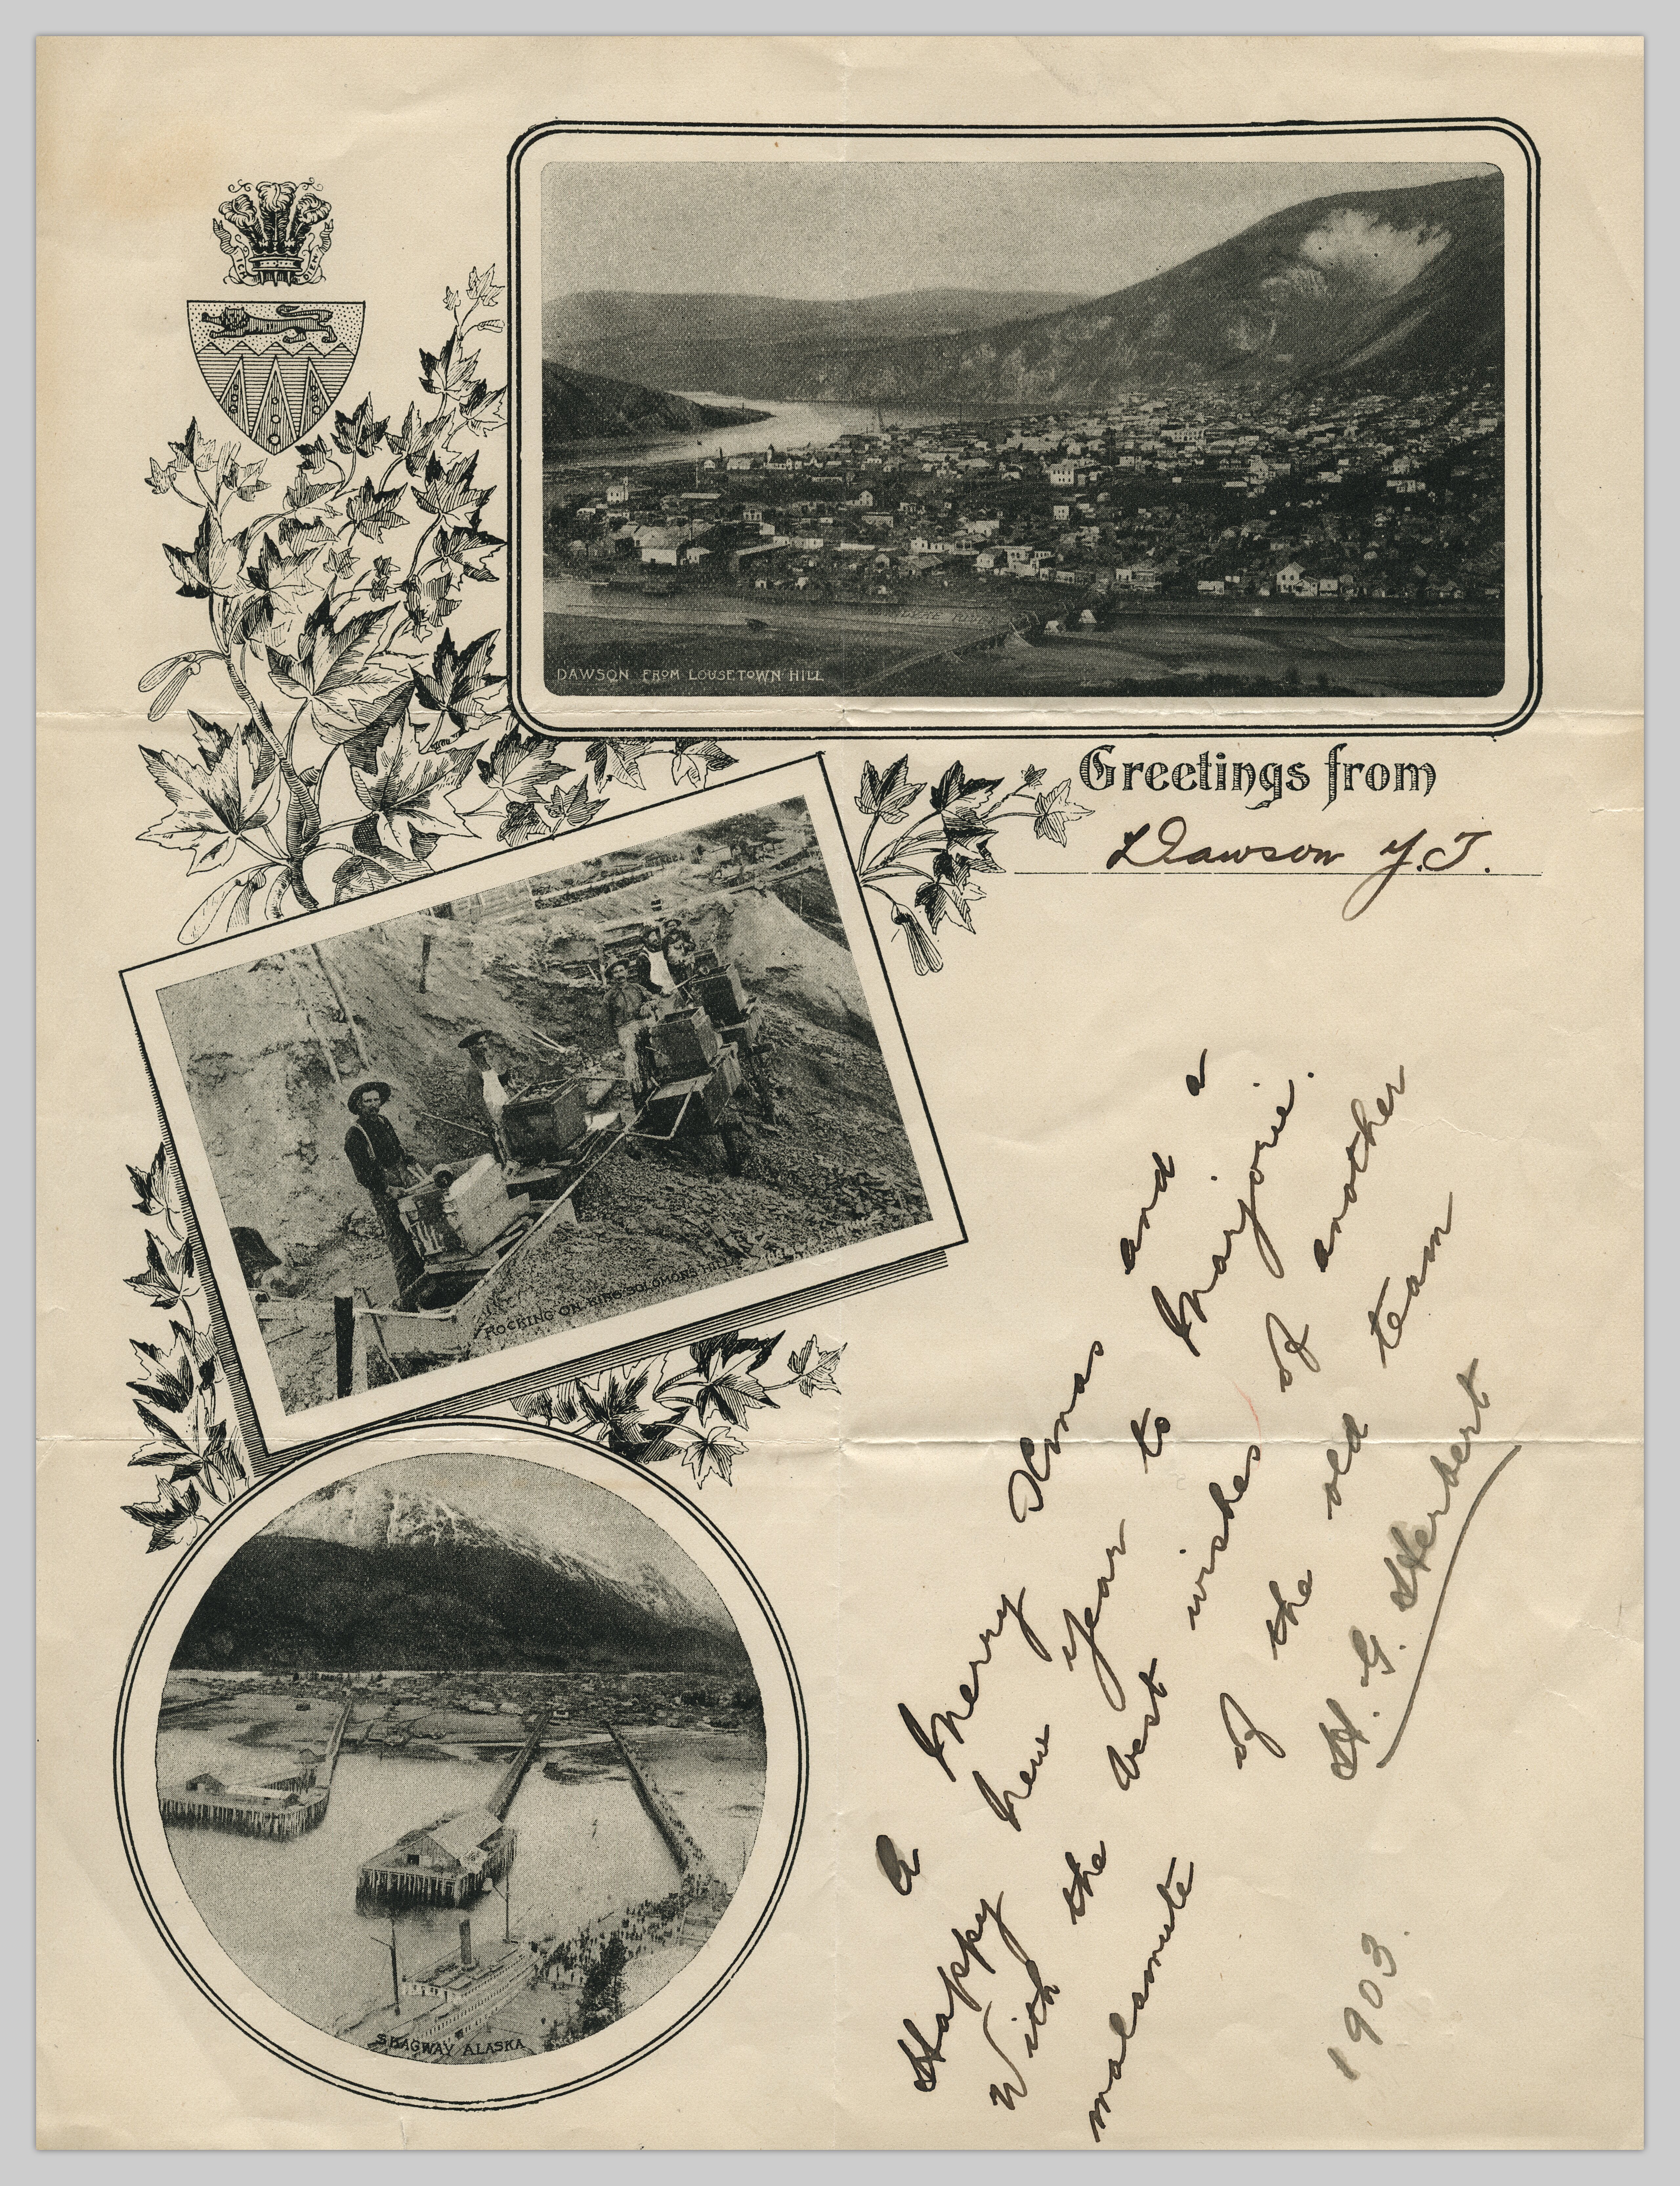 ICH DIEN
DAWSON FROM LOUSETOWN HILL
Greetings from
Dawson Y.T.
ROCKING ON KING SOLOMONS HILL
SKAGWAY ALASKA
A Merry Xmas and a
Happy New Year to Marjorie.
With the best wishes of another
malamute of the old team
H. G. Herbert
1903.